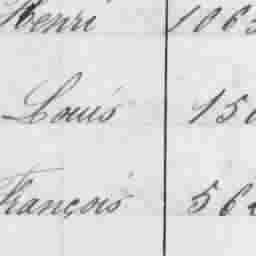 Henri 1063
Louis 150
François 564